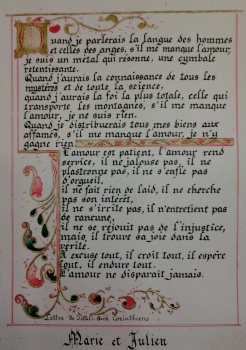 Quand je parlerais la langue des hommes
et celles des anges, s'il me manque l'amour,
je suis un métal qui résonne, une cymbale
retentissante.
Quand j'aurais la connaissance de tous les
mystères et de toute la science,
quand j'aurais la foi la plus totale, celle qui
transporte les montagnes, s'il me manque
l'amour, je ne suis rien.
Quand je distribuerais tous mes biens aux
affamés, s'il me manque l'amour, je n'y
gagne rien
L'amour est patient, l'amour rend
service, il ne jalouse pas, il ne
plastronne pas, il ne s'enfle pas
d'orgueil,
il ne fait rien de laid, il ne cherche
pas son intérêt,
il ne s'irrite pas, il n'entretient pas
de rancune,
il ne se réjouit pas de l'injustice,
mais il trouve sa joie dans la
vérité.
Il excuse tout, il croit tout, il espère
tout, il endure tout.
L'amour ne disparaît jamais.
Lettre de Paul aux Corinthiens
Marie et Julien